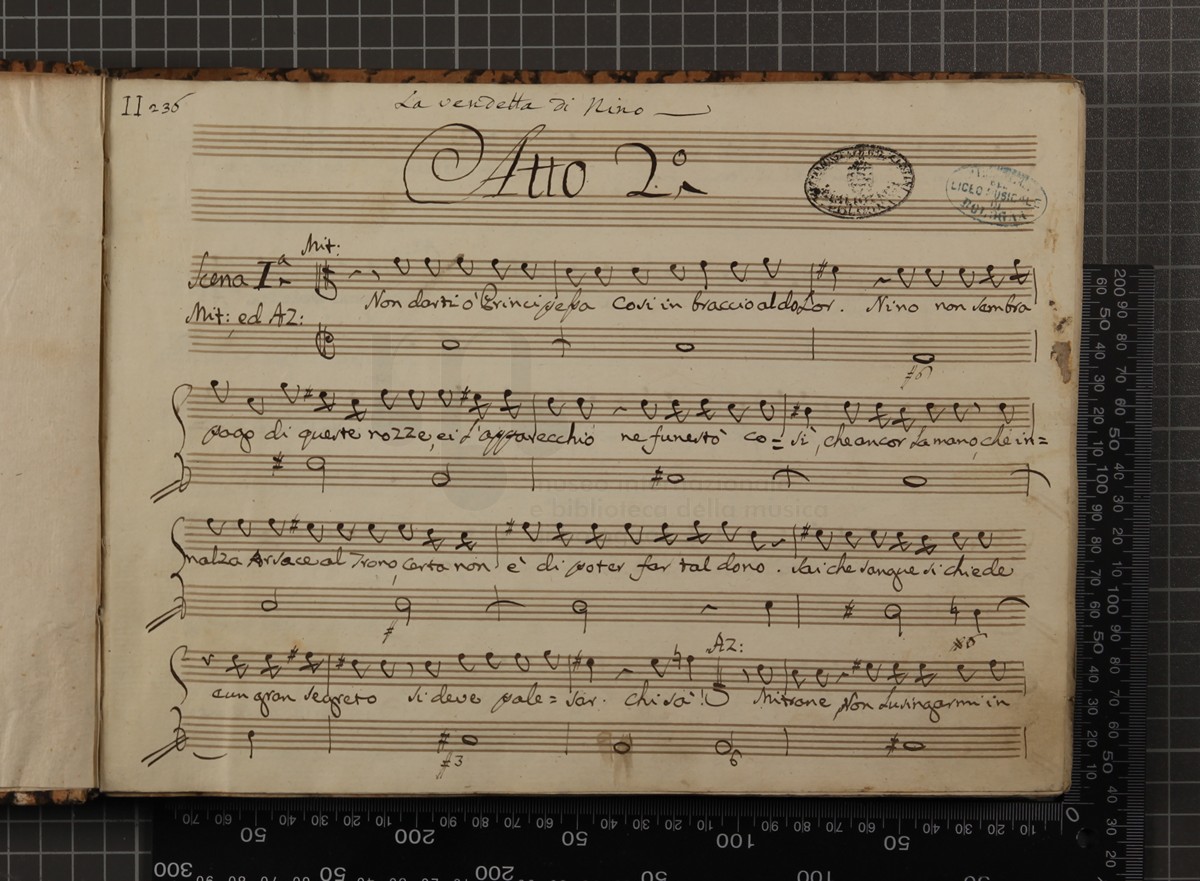 II 236
La vendetta di Nino
Atto 2.º
LICEO MUSICALE
DI
BOLOGNA
Mit:
Scena I.ª
Non darti ò Principessa Cosi in braccio al dolor. Nino non sembra
Mit: ed AZ:
#6
pago di queste nozze, ei l'apparecchio ne funestò co=sì, che ancor la mano, che in=
museo internazionale
e biblioteca della musica
nalza Arsace al Trono, certa non è di poter far tal dono. Sai che sangue si chiede
#
AZ:
e un gran segreto si deve pale=sar. chi sà! Mitrane Non lusingarmi in
#3
6